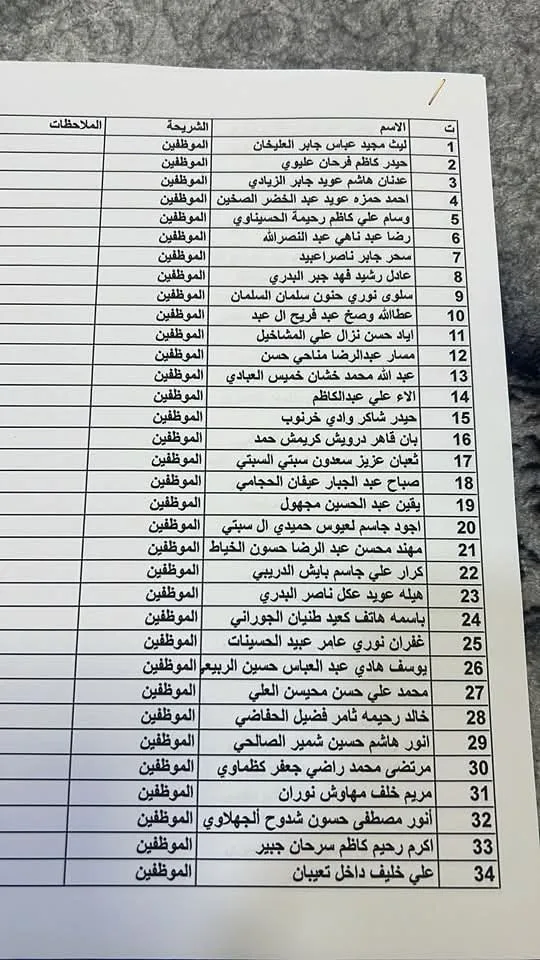 ت الاسم الشريحة الملاحظات
1 ليث مجيد عباس جابر العليخان الموظفين
2 حيدر كاظم فرحان عليوي الموظفين
3 عدنان هاشم عويد جابر الزيادي الموظفين
4 احمد حمزه عويد عبد الخضر الصخين الموظفين
5 وسام علي كاظم رحيمة الحسيناوي الموظفين
6 رضا عبد ناهي عبد النصرالله الموظفين
7 سحر جابر ناصراعبيد الموظفين
8 عادل رشيد فهد جبر البدري الموظفين
9 سلوى نوري حنون سلمان السلمان الموظفين
10 عطاالله وصخ عبد فريح ال عبد الموظفين
11 اياد حسن نزال علي المشاخيل الموظفين
12 مسار عبدالرضا مناحي حسن الموظفين
13 عبد الله محمد خشان خميس العبادي الموظفين
14 الاء علي عبدالكاظم الموظفين
15 حيدر شاكر وادي خرنوب الموظفين
16 بان قاهر درويش كريمش حمد الموظفين
17 ثعبان عزيز سعدون سبتي السبتي الموظفين
18 صباح عبد الجبار عيفان الحجامي الموظفين
19 يقين عبد الحسين مجهول الموظفين
20 اجود جاسم لعيوس حميدي ال سبتي الموظفين
21 مهند محسن عبد الرضا حسون الخياط الموظفين
22 كرار علي جاسم بايش الدريبي الموظفين
23 هيله عويد عكل ناصر البدري الموظفين
24 باسمه هاتف كعيد طنيان الجوراني الموظفين
25 غفران نوري عامر عبيد الحسينات الموظفين
26 يوسف هادي عبد العباس حسين الربيعي الموظفين
27 محمد علي حسن محيسن العلي الموظفين
28 خالد رحيمه ثامر فضيل الحفاضي الموظفين
29 انور هاشم حسين شمير الصالحي الموظفين
30 مرتضى محمد راضي جعفر كظماوي الموظفين
31 مريم خلف مهاوش نوران الموظفين
32 أنور مصطفى حسون شدوح ألجهلاوي الموظفين
33 اكرم رحيم كاظم سرحان جبير الموظفين
34 علي خليف داخل تعيبان الموظفين